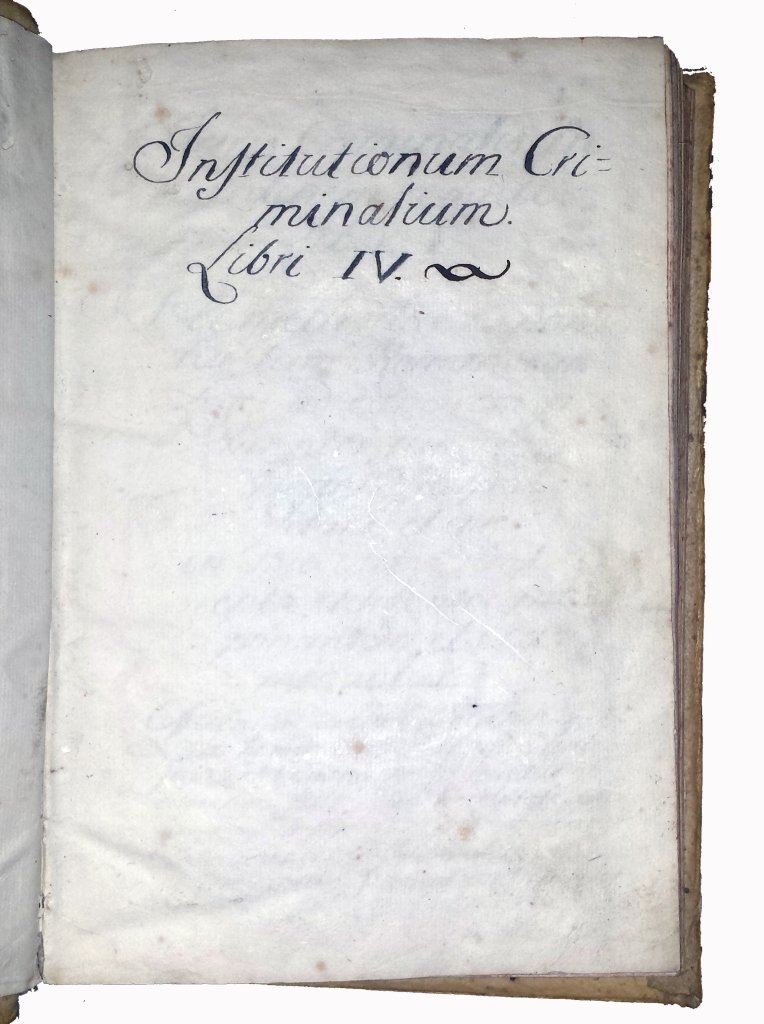 Institutionum Cri=
minalium.
Libri IV.